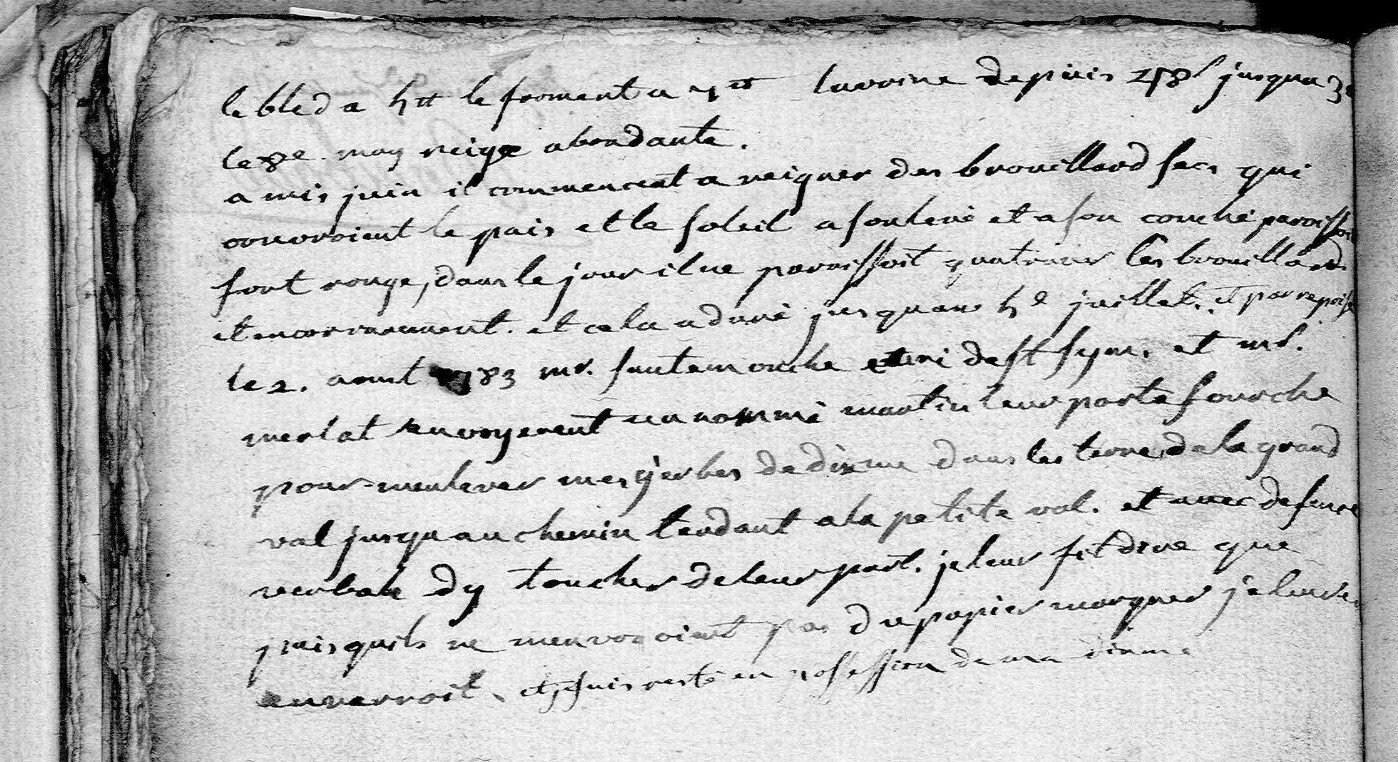 le bled a 4tt le froment a 5tt lavoine depuis 25s jusqua 30
le 8e may neige abondante.
a mis juin il commencent a reigner des brouillard secs qui
couvroient le pais et le soleil a son levé et a son couché paroissoit
fort rouge, dans le jour il ne paroissoit qua travers les brouillards
et encor rarement. et cela a duré jusquau 4e juillet. et par reprise
le 2. aout 1783 mr. sautemouche curé de st sym. et mr.
merlat envoyerent un nommé martin leur porte fourche
pour menlever mes gerbes de dixme dans les terres de la grand
val jusquau chemin tendant a la petite val. et avec defence
verbale dy toucher de leur part. je leur fit dire que
puisquils ne menvoyoient pas du papier marquer je leur en
envernoit, et suis resté en possession de ma dixme